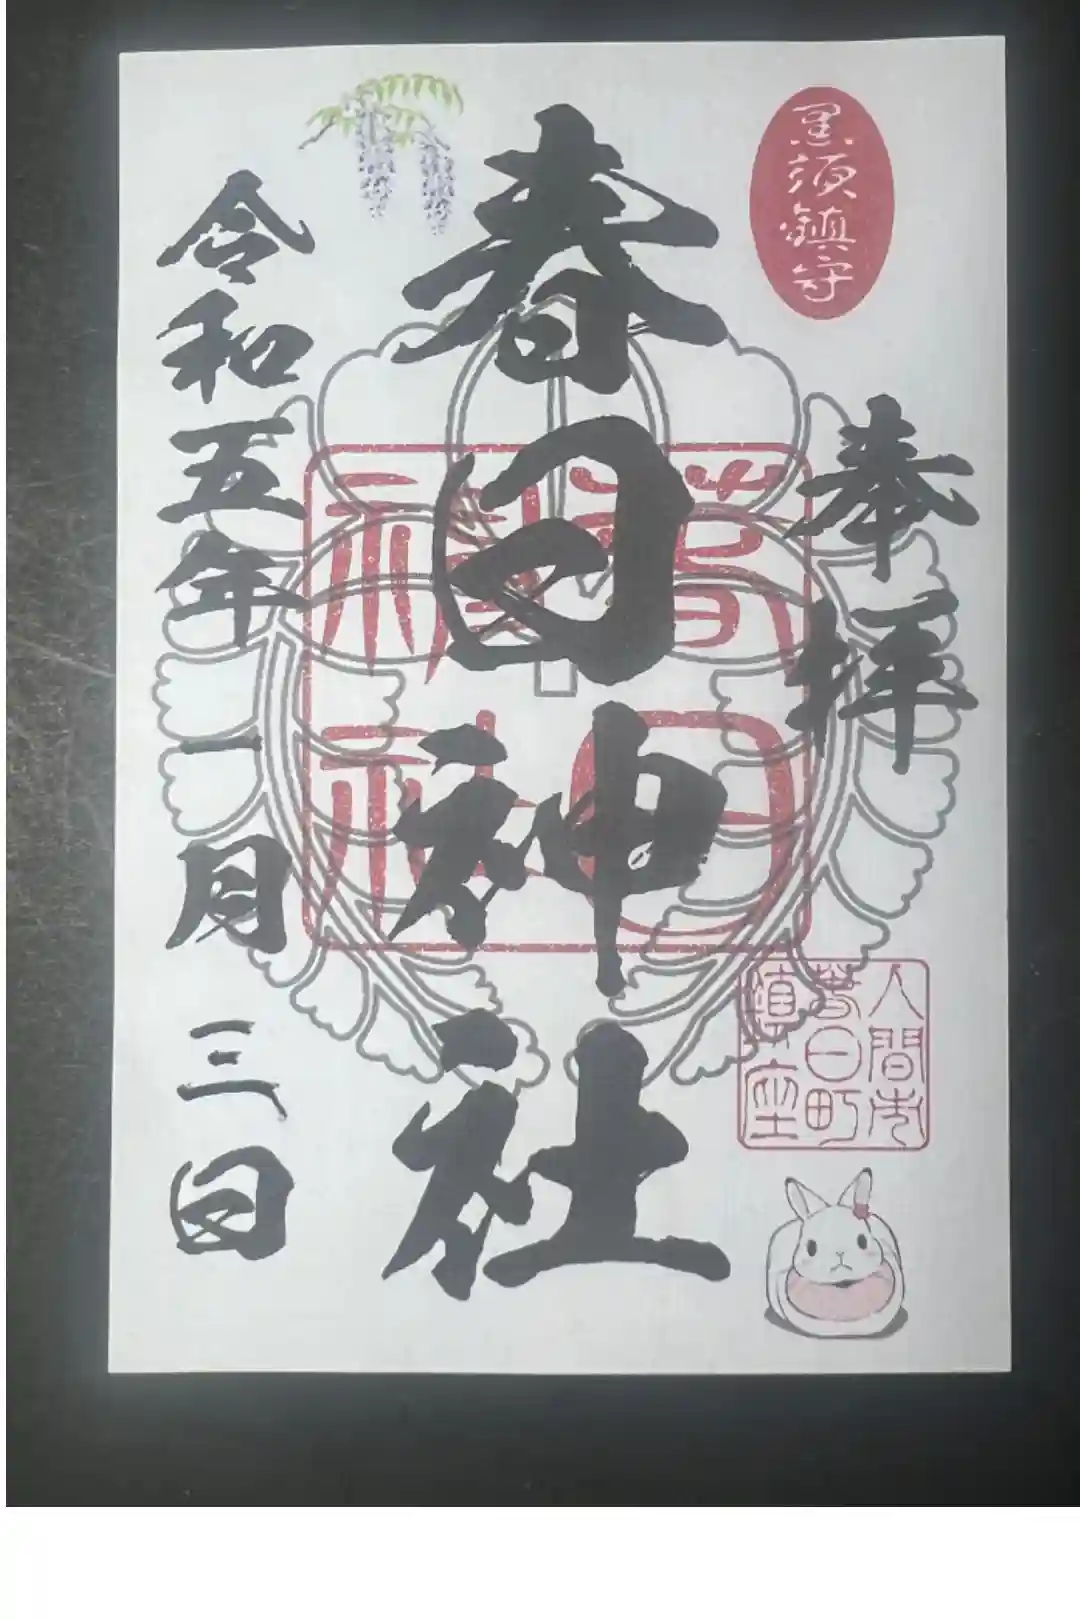 黒須鎮守
奉拝
春日神社
春日
神社
入間市
春日町
鎮座
令和五年一月三日